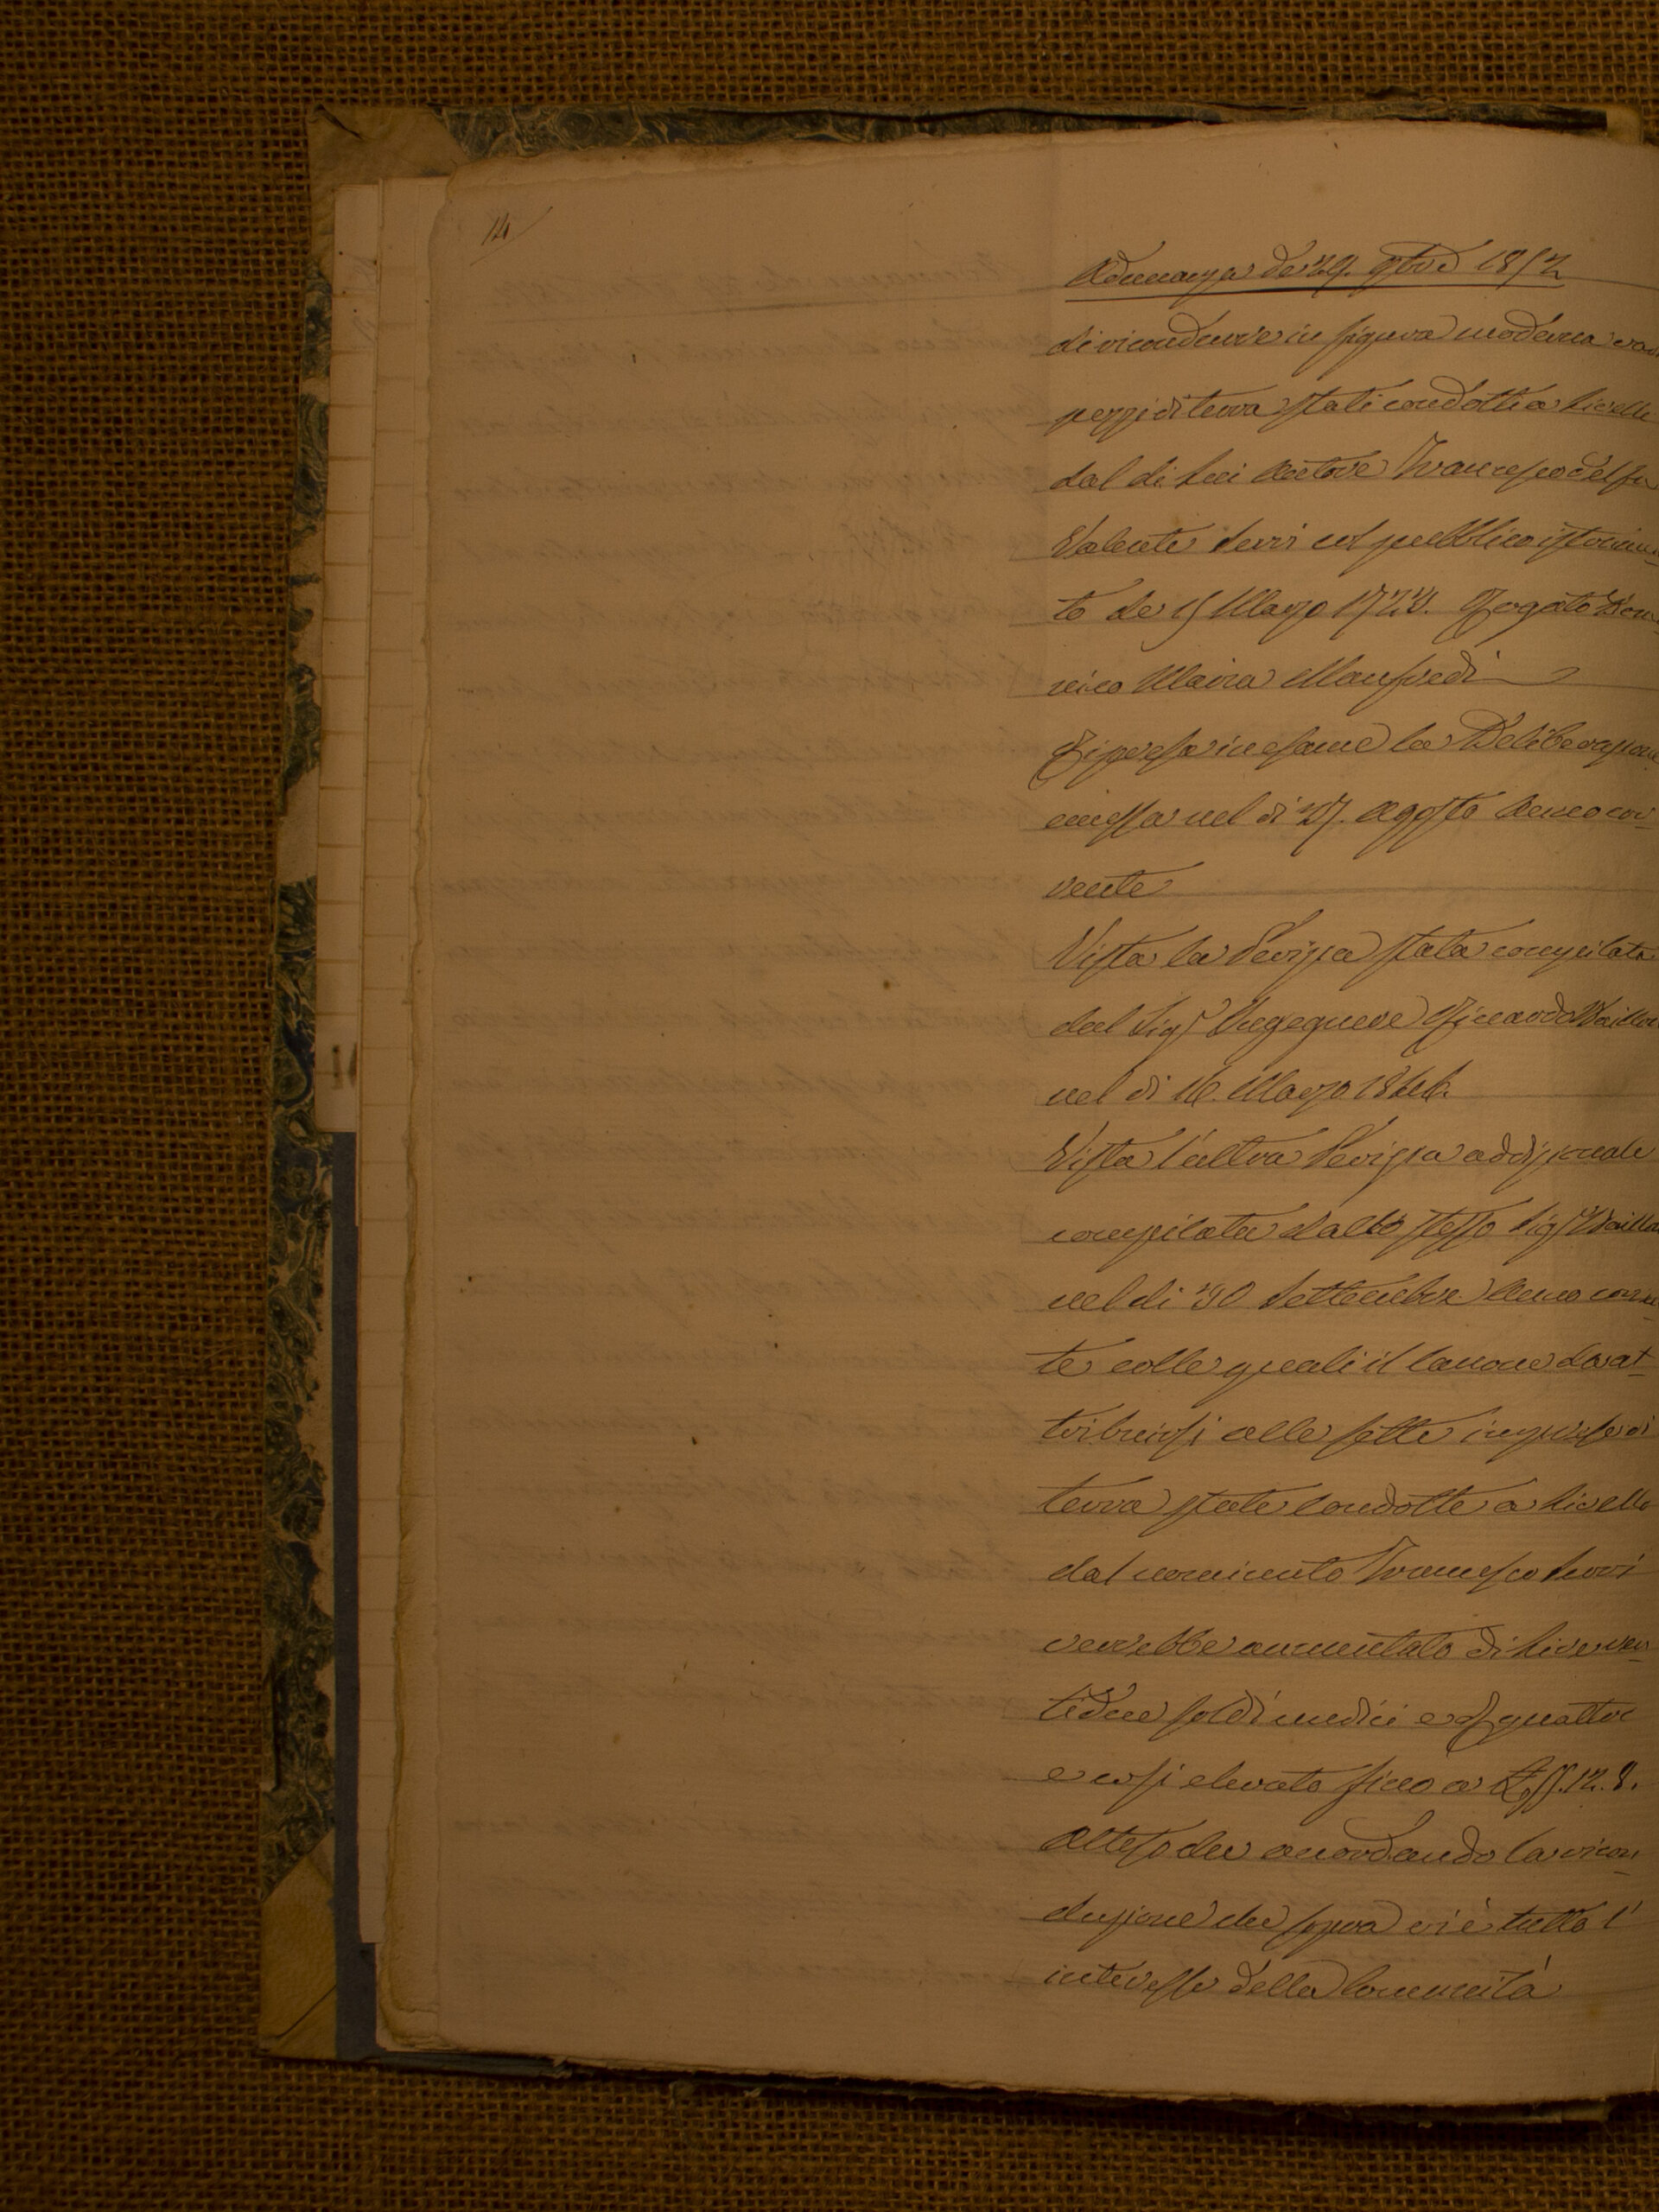 Adunanza de 29. 9bre 1852
di ricondurre in figura moderna
pezzi di terra stati condotti a livello
dal di lui Autore Francesco del fu
Valente Serri col pubblico istrumen
to de 15 Marzo 1723. Rogato Dom
nico Maria Manfredi
Ripresa in esame la Deliberazione
emessa nel di 27. Agosto Anno cor
rente
Vista la Perizia stata compilata
dal Sigr Ingegnere Riccardo
nel di 16. Marzo 1844.
Vista l'altra Perizia addizionale
compilata dallo stesso Sigr
nel di 30 Settembre Anno corren
te colle quali il Canone da at
tribuirsi alle sette imprese di
terra state condotte a livello
dal nominato Francesco Serri
verrebbe aumentato di Lire ven
tidue soldi undici e quattro
e così elevato fino a £ 55.12.8.
Atteso che accordando la ricon
duzione che sopra vi è tutto l'
interesse della Comunità